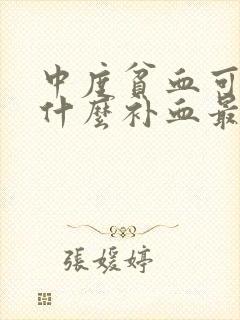 中度贫血可
什麼补血最
張媛婷